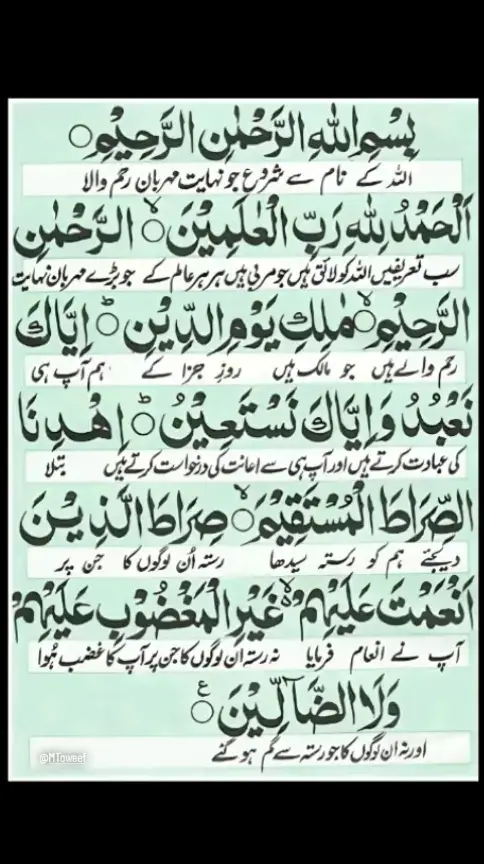 بِسْمِ اللهِ الرَّحْمٰنِ الرَّحِيْمِ ○
اللہ کے نام سے شروع جو نہایت مہربان رحم والا
اَلْحَمْدُ لِلّٰهِ رَبِّ الْعٰلَمِيْنَ ○ۙ الرَّحْمٰنِ
سب تعریفیں اللہ کو لائق ہیں جو مربی ہیں ہر ہر عالم کے جو بڑے مہربان نہایت
الرَّحِيْمِ ○ۙ مٰلِكِ يَوْمِ الدِّيْنِ ○ؕ اِيَّاكَ
رحم والے ہیں جو مالک ہیں روزِ جزا کے ہم آپ ہی
نَعْبُدُ وَاِيَّاكَ نَسْتَعِيْنُ ○ؕ اِهْدِنَا
کی عبادت کرتے ہیں اور آپ ہی سے اعانت کی درخواست کرتے ہیں بتلا
الصِّرَاطَ الْمُسْتَقِيْمَ ○ۙ صِرَاطَ الَّذِيْنَ
دیجئے ہم کو رستہ سیدھا رستہ اُن لوگوں کا جن پر
اَنْعَمْتَ عَلَيْهِمْ ○ۙ غَيْرِ الْمَغْضُوْبِ عَلَيْهِمْ
آپ نے انعام فرمایا نہ رستہ ان لوگوں کا جن پر آپ کا غضب ہُوا
وَلَا الضَّآلِّيْنَ ○ع
اور نہ ان لوگوں کا جو رستہ سے گم ہو گئے
@MTaweet